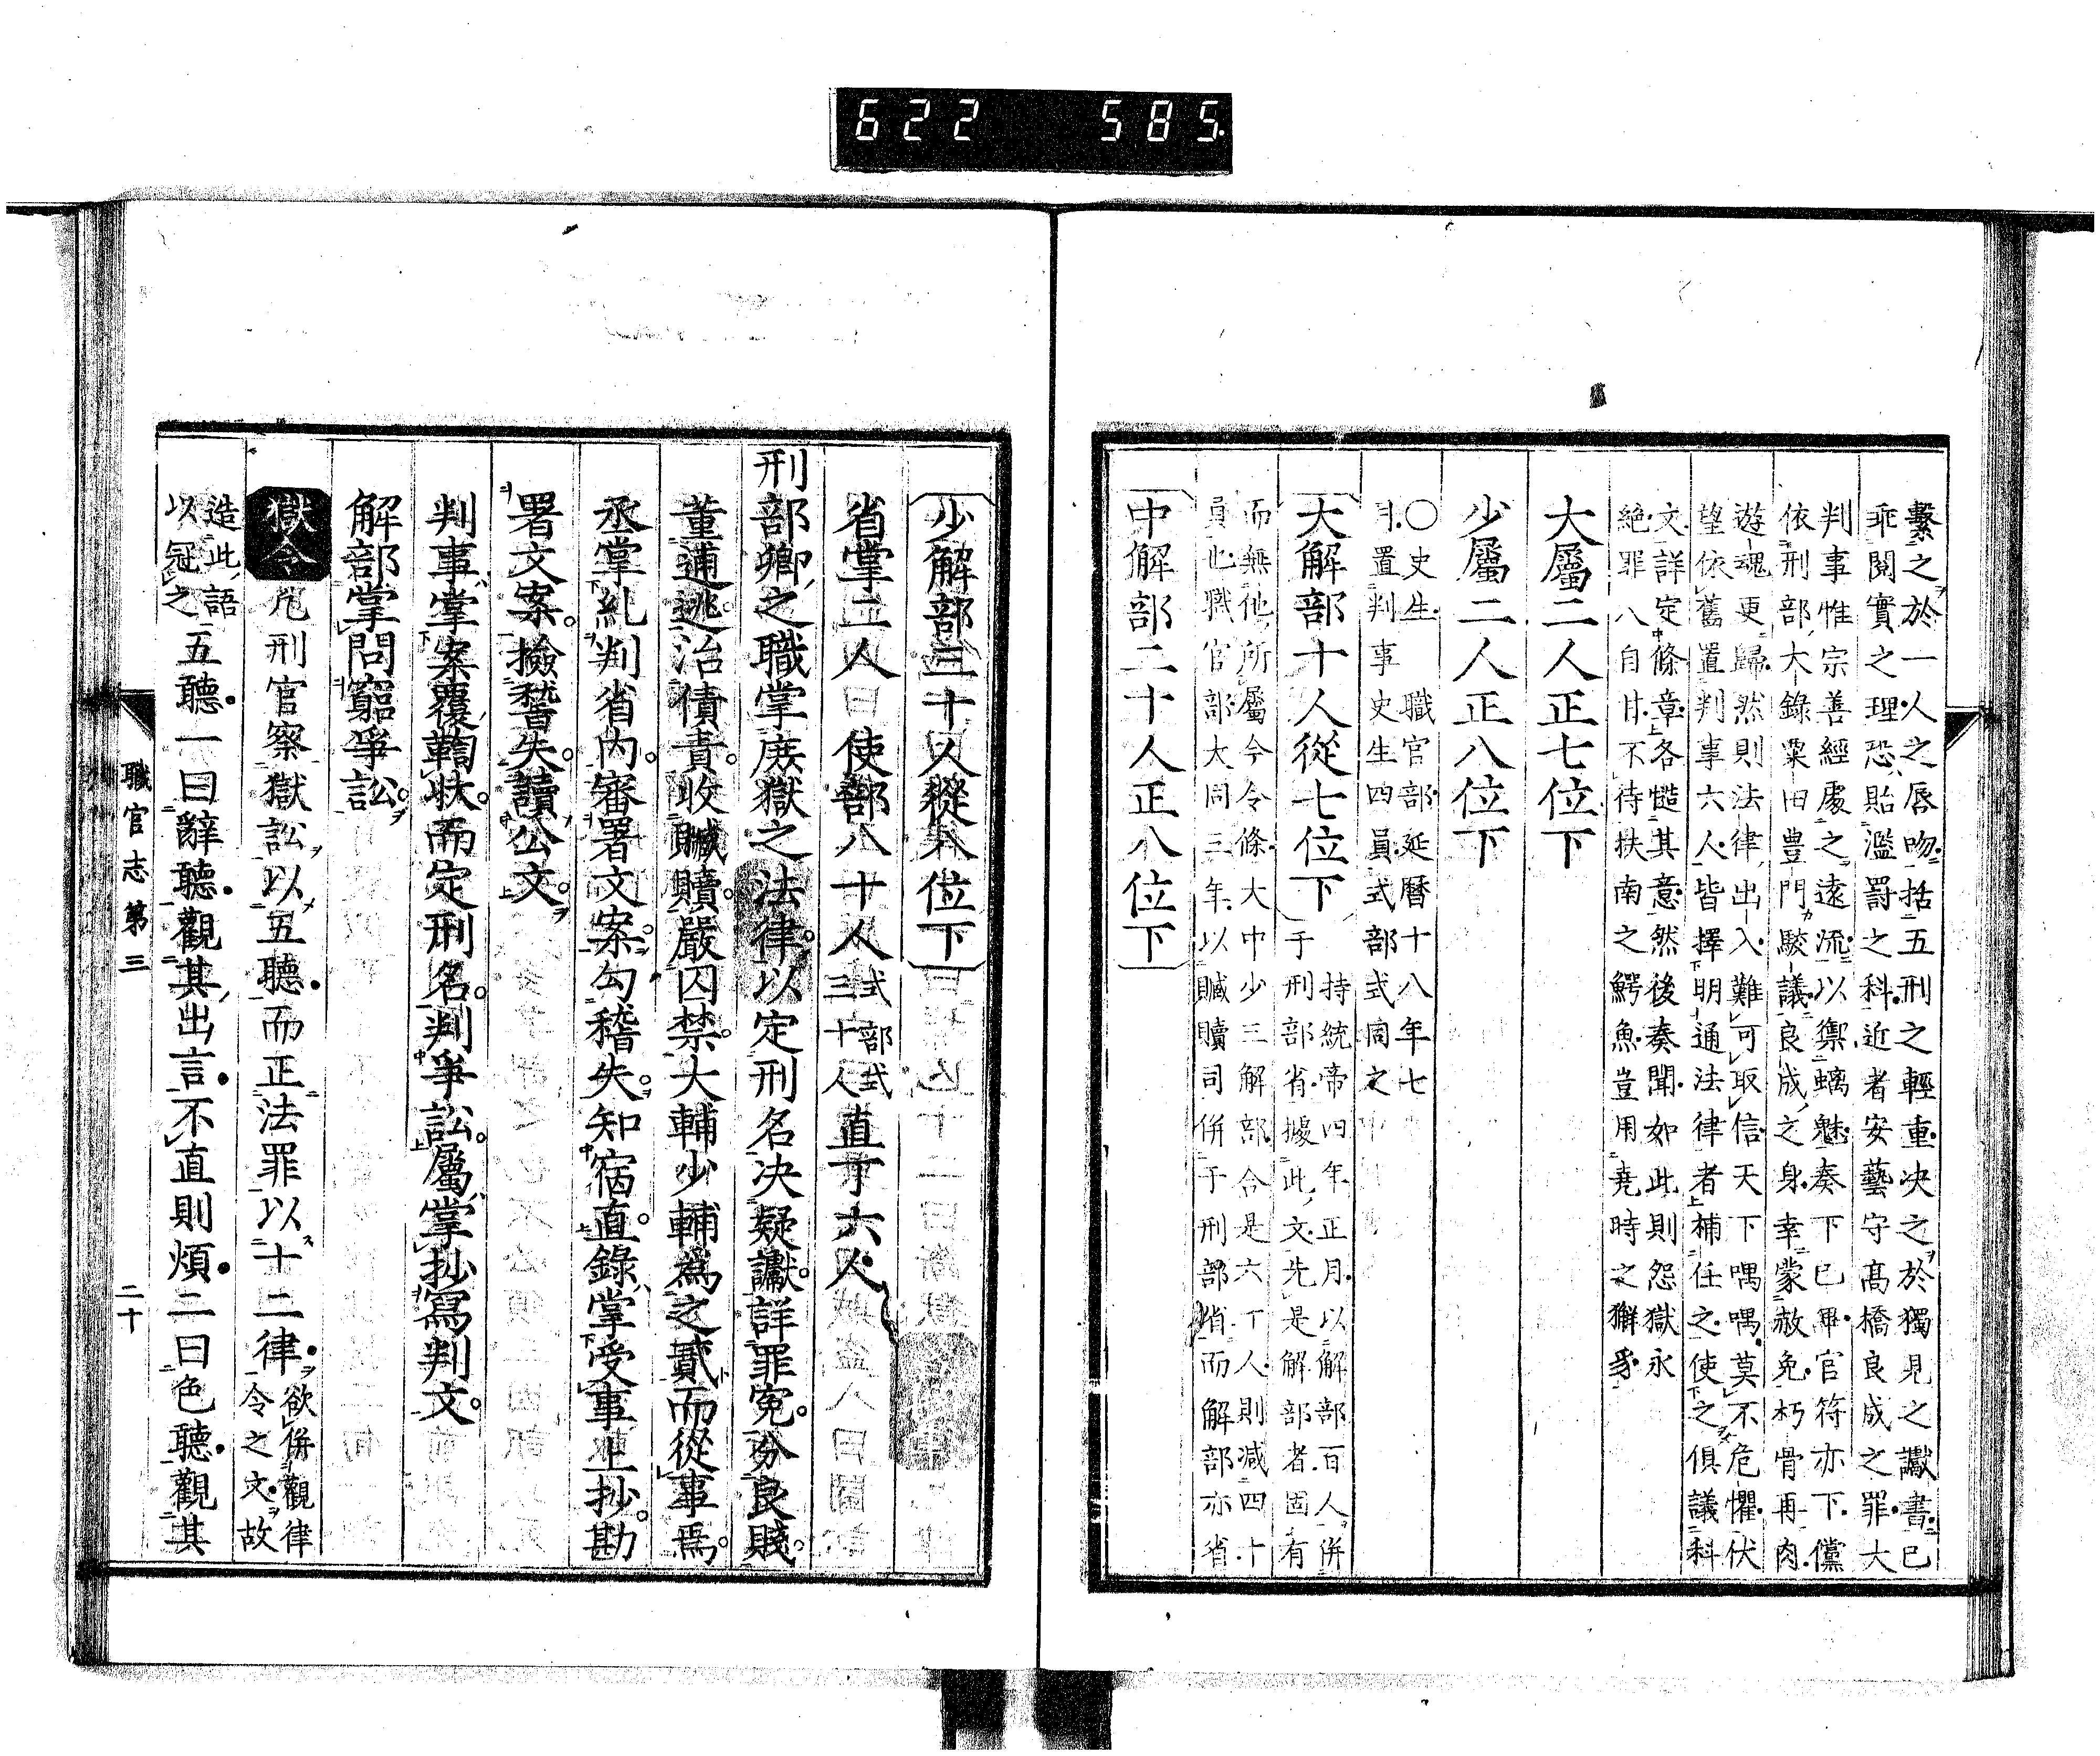 622 585
繫之於一人之唇吻括五刑之輕重决之於獨見之讞書已
乖閱實之理恐貽濫罰之科近者安藝守高橋良成之罪大
判事惟宗善經處之遠流以禦螭魅奏下已畢官符亦下儻
依刑部大錄粟田豊門駮議良成之身幸蒙赦免朽骨再肉
遊魂更歸然則法律出入難可取信天下喁喁莫不危懼伏
望依舊置判事六人皆擇明通法律者補任之使之俱議科
文詳定條章各愷其意然後奏聞如此則怨獄永
絶罪八自甘不待扶南之鰐魚豈用堯時之獬豸
大屬二人正七位下
少屬二人正八位下
〇史生職官部延曆十八年七
月置判事史生四員式部式同之
大解部十人從七位下
持統帝四年正月以解部百人併
于刑部省據此文先是解部者固有
而無他所屬今令條大中少三解部合是六丁人則減四十
員也職官部大同三年以贓贖司併于刑部省而解部亦省
中解部二十人正八位下
少解部三十人從八位下
省掌二人使部八十人
式部式
三十人
直丁六人
刑部卿之職掌庶獄之法律以定刑名决疑讞詳罪寃分良賤
董逋逃治債責收贓贖嚴囚禁大輔少輔爲之貳而從事焉
丞掌糺判省內審署文案勾稽失知宿直錄掌受事上抄勘
署文案撿䅲失讀公文
判事掌案覆鞫狀而定刑名判爭訟屬掌抄寫判文
解部掌問窮爭訟
獄令凡刑官察獄訟以五聽而正法罪以十二律
欲併觀律
令之文故
造此語
以冠之
五聽一曰辭聽觀其出言不直則煩二曰色聽觀其
職官志第三
二十